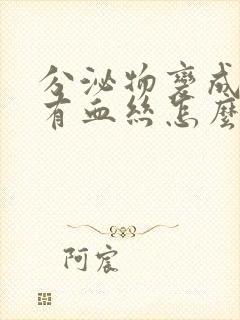 分泌物变成
有血丝怎麼
阿宸